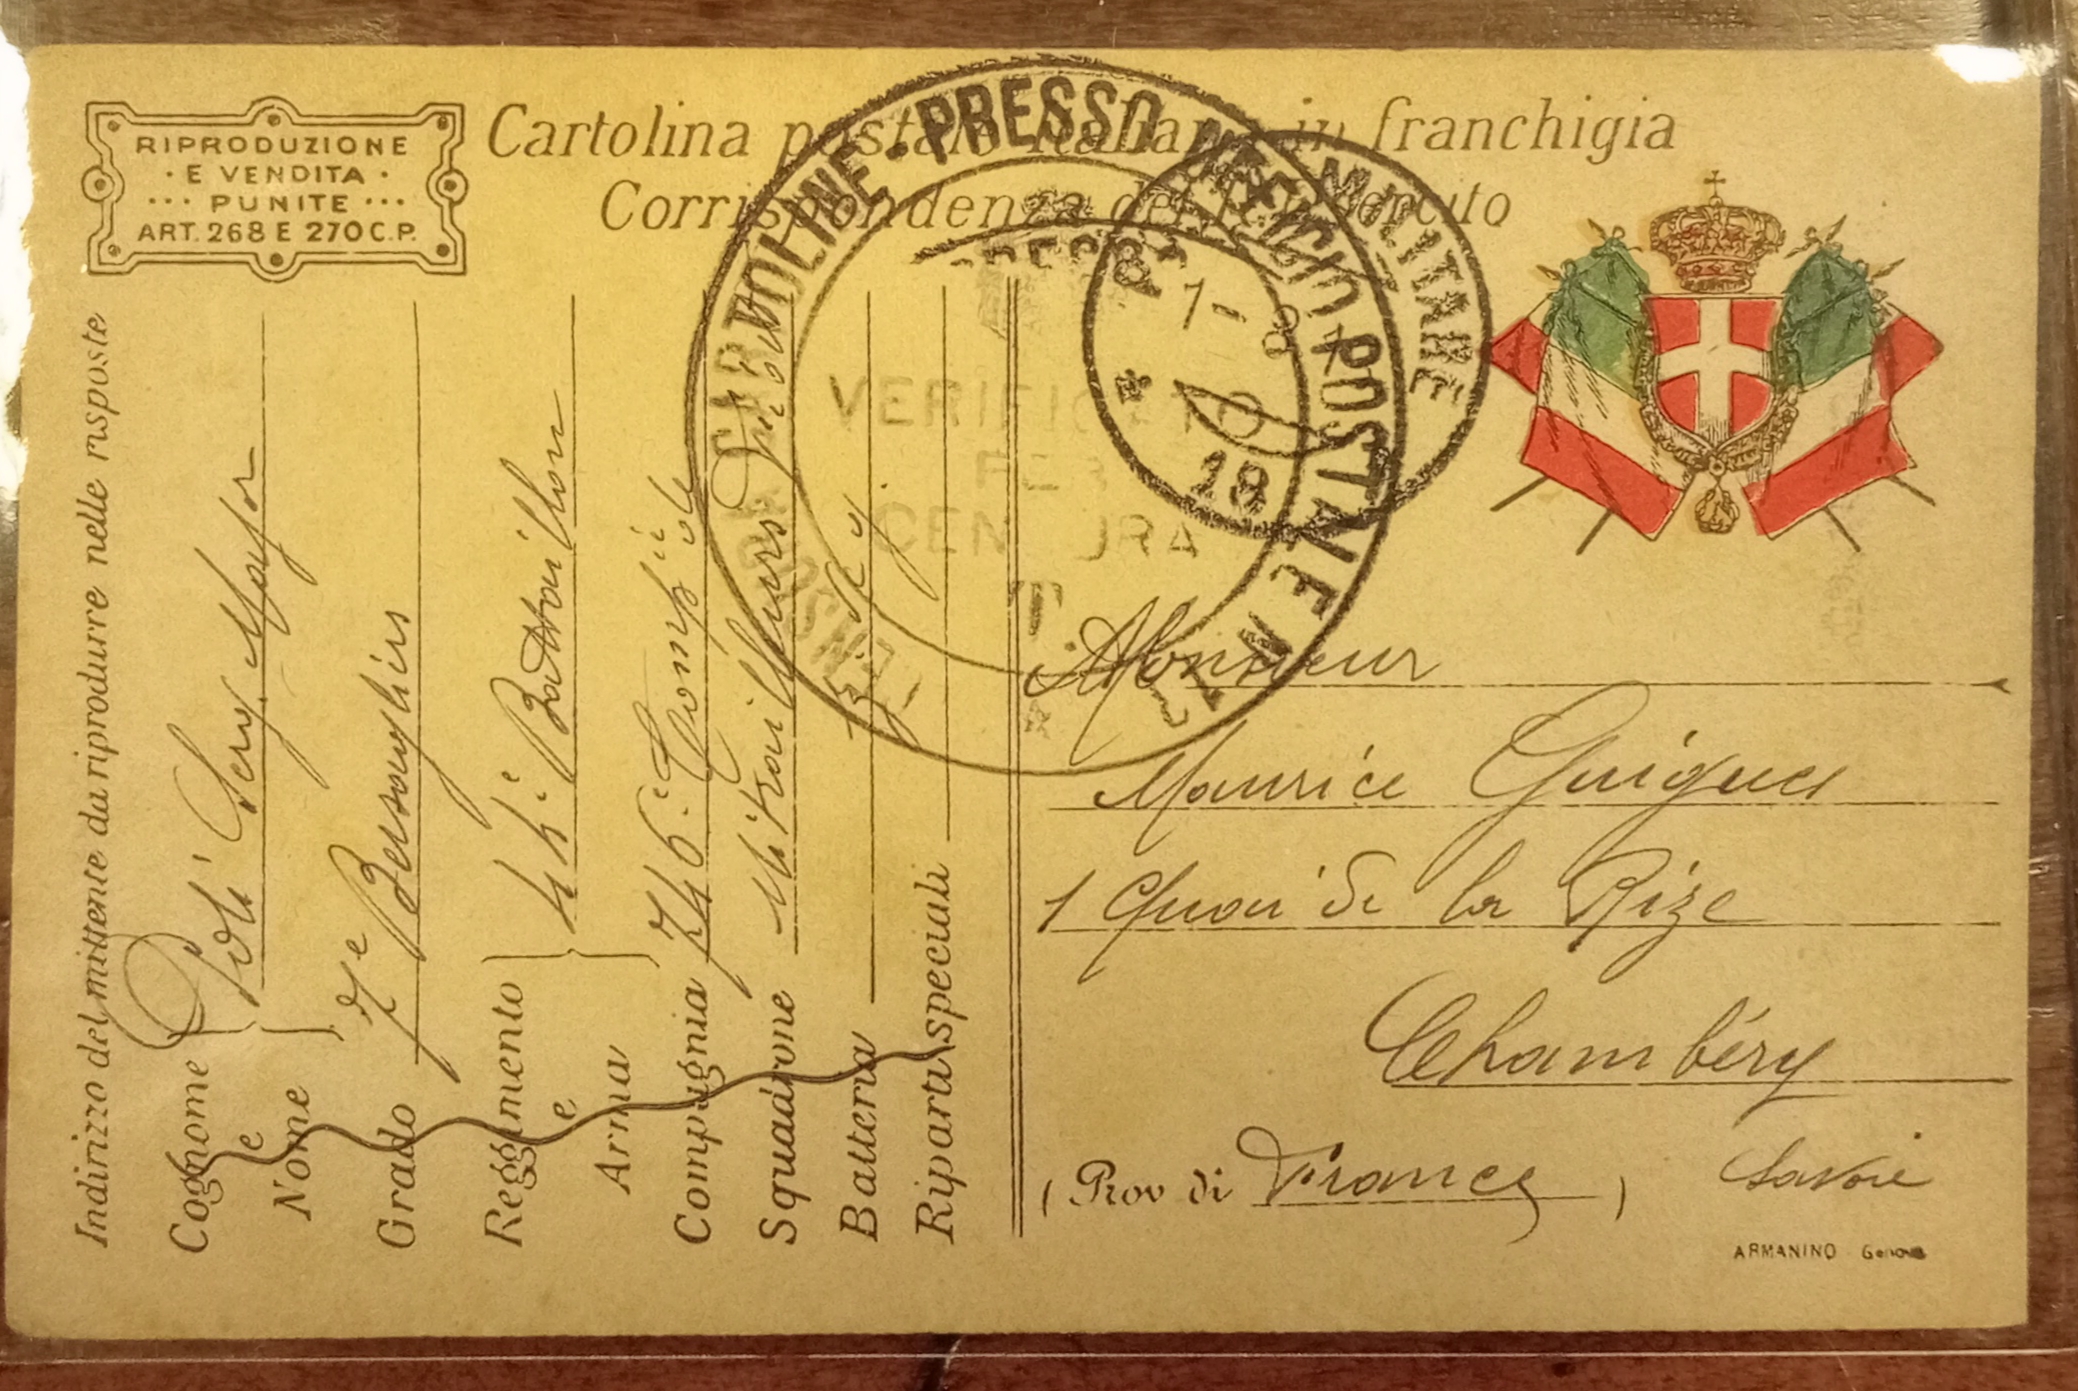 RIPRODUZIONE
· E VENDITA ·
··· PUNITE ···
ART. 268 E 270 C.P.
Cartolina postale italiana in franchigia
Corrispondenza del R. Esercito
CARTOLINE - PRESSO UFFICIO POSTA
MILITARE
1 - 8
18
VERIFICATO
PER
CENSURA
Indirizzo del mittente da riprodurre nelle risposte
Cognome e Nome
Grado 7e Bersaglieri
Reggimento e Arma 44e Battaillon
Compagnia 746e Compie de
Squadrone Mitrailleurs
Batteria
Riparti speciali
Monsieur
Maurice Guigues
1 Quai de la Rize
Chambéry
(Prov di France) Savoie
ARMANINO Genova